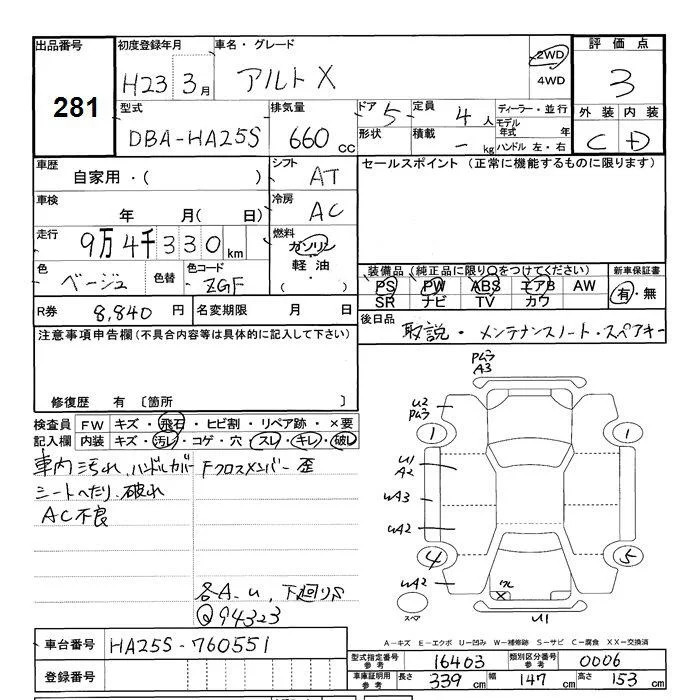 出品番号
281
初度登録年月
H23 3月
車名・グレード
アルト X
2WD
4WD
評価点
3
外装 内装
C D
型式
DBA-HA25S
排気量
660 cc
ドア 5
形状
定員 4 人
積載 - kg
ディーラー・並行
モデル年式 年
ハンドル 左・右
車歴
自家用・( )
シフト
AT
セールスポイント (正常に機能するものに限ります)
車検
年 月( 日)
冷房
AC
走行
9万4千330km
燃料
ガソリン
軽・油
( )
色
ベージュ
色替
色コード
ZGF
装備品 (純正品に限り○をつけてください)
PS PW ABS エアB AW
SR ナビ TV カワ
新車保証書
有・無
R券 8,840 円
名変期限 月 日
後日品
取説・メンテナンスノート・スペアキー
注意事項申告欄(不具合内容等は具体的に記入して下さい)
修復歴 有 〔箇所 〕
検査員記入欄
FW キズ・飛石・ヒビ割・リペア跡・×要
内装 キズ・汚レ・コゲ・穴・スレ・キレ・破レ
車内汚れ、ハンドルカバー
シートへたり、破れ
AC不良
Fクロスメンバー歪
各A.U、下廻りS
Q94323
PムラA3
U2
Pムラ
1
1
U1
A2
UA3
UA2
4
5
UA2
スペア
ワレ
X
U1
A-キズ E-エクボ U-凹み W-補修跡 S-サビ C-腐食 XX-交換済
車台番号
HA25S-760551
登録番号
型式指定番号
参考
16403
類別区分番号
参考
0006
車庫証明用
参考
長さ 339 cm
幅 147 cm
高さ 153 cm